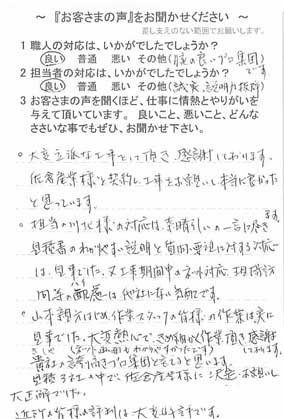 ～ 『お客さまの声』をお聞かせください ～
差し支えのない範囲でお願いします。
1 職人の対応は、いかがでしたでしょうか?
良い 普通 悪い その他(腕の良いプロ集団です)
2 担当者の対応は、いかがでしたでしょうか?
良い 普通 悪い その他(誠実、説明力抜群)
3 お客さまの声を聞くほど、仕事に情熱とやりがいを
与えて頂いています。 良いこと、悪いこと、どんな
ささいな事でもぜひ、お聞かせ下さい。
○ 大変立派な工事をして頂き、感謝しております。
佐倉産業様と契約し、工事をお願いし本当に良かった
と思っています。
○ 担当の川北様の対応は、素晴しいの一言に尽きます
見積書のわかりやすい説明と質問・要望に対する対応
は、見事でした。又工事期間中の
同等の配慮は他社にない気配です。
○ 山本親方はじめ、作業スタッフの皆様の作業は実に
見事でした。大変熱心で、きめ細かく作業頂き感謝
しております。
貴社の誇り高きプロ集団と言えると思います。
見積3社の中で、佐倉産業様に決定、お願いし
大正解でした。
近所の皆様の評判は大変良好です。